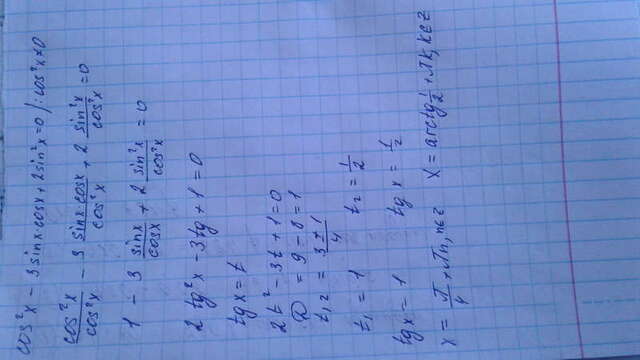 cos²x - 3sinx·cosx + 2sin²x = 0 /: cos²x ≠ 0
cos²x/cos²x - 3 sinx·cosx/cos²x + 2 sin²x/cos²x = 0
1 - 3 sinx/cosx + 2 sin²x/cos²x = 0
2 tg²x - 3tg + 1 = 0
tgx = t
2t² - 3t + 1 = 0
D = 9 - 8 = 1
t₁,₂ = 3±1/4
t₁ = 1 t₂ = 1/2
tgx = 1 tgx = 1/2
x = π/4 + πn, n∈z x = arctg 1/2 + πk, k∈z